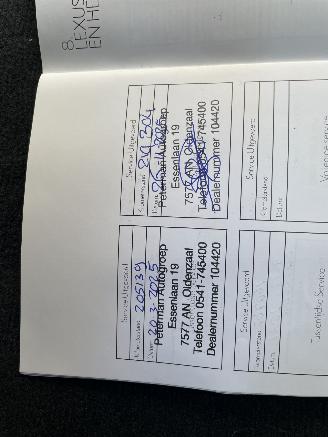 8.
LEXUS
EN HE
Service Uitgevoerd
Kilometerstand 205139
Datum 20-3-2025
Peterman Autogroep
Essenlaan 19
7577 AN Oldenzaal
Telefoon 0541-745400
Dealernummer 104420
Service Uitgevoerd
Kilometerstand
Datum
Peterman Autogroep
Essenlaan 19
7577 AN Oldenzaal
Telefoon 0541-745400
Dealernummer 104420
Service Uitgevoerd
Kilometerstand
Datum
Tussentijdse Service
Service Uitgevoerd
Kilometerstand
Datum
Volgende service